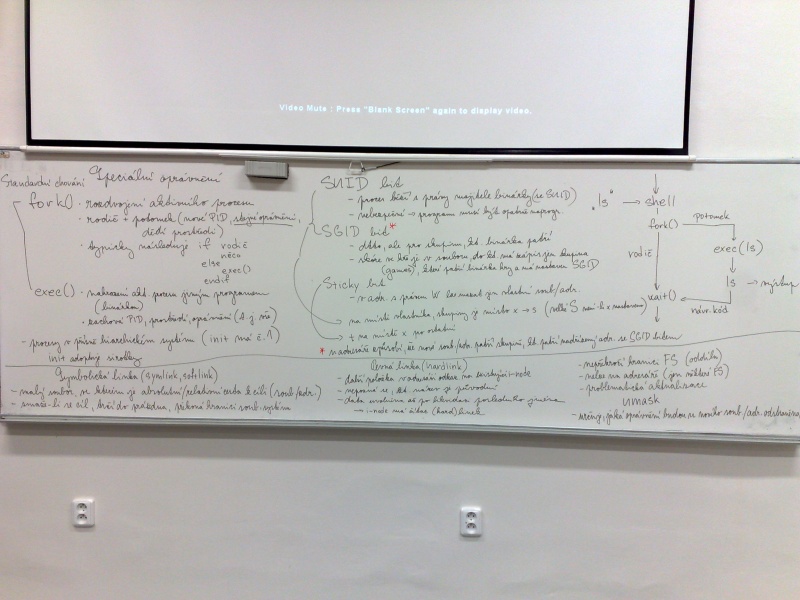 Video Mute : Press "Blank Screen" again to display video.
Standardní chování
Speciální oprávnění
fork() · rozdvojení aktivního procesu
· rodič + potomek (nové PID, stejné oprávnění,
dědí prostředí)
· typicky následuje if rodič
něco
else
exec()
endif
exec() · nahrazení akt. procesu jiným programem
(binárkou)
· zachová PID, prostředí, oprávnění
- procesy v přísně hierarchickém systému (init má č. 1)
init adoptuje sirotky
SUID bit
- proces běží s právy majitele binárky (se SUID)
- nebezpečné → program musí být opatrně naprogr.
SGID bit *
- dtto, ale pro skupinu, kt. binárka patří
- skóre ve hře je v souboru, do kt. má zápis jen skupina
(games), které patří binárka hry a má nastaven SGID)
Sticky bit
- v adr. s právem W lze mazat jen vlastní soub/adr.
→ na místě vlastníka, skupiny je místo x → s (velké S není-li x nastaveno)
→ t na místě x pro ostatní
* u adresáře způsobí, že nové soub/adr. patří skupině, kt. patří nadřazený adr. se SGID bitem
"ls" → shell
fork() potomek
rodič exec(ls)
ls → výstup
wait() návr. kód
Symbolická linka (symlink, softlink)
- malý soubor, ve kterém je absolutní/relativní cesta k cíli (soub/adr.)
- smaže-li se cíl, trčí do prázdna, překoná hranici soub. systému
Pevná linka (hardlink)
- další položka v adresáři odkaz na existující i-node
- nepozná se, kt. název je původní
- data uvolněna až po likvidaci posledního jména
→ i-node má čítač (hard)linek
- nepřekročí hranici FS (oddílu)
- nelze na adresáře (jen některé FS)
- problematická aktualizace
umask
- určuje, jaká oprávnění budou ze nového soub/adr. odstraněna